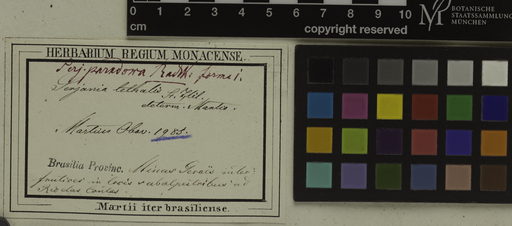 0 1 2 3 4 5 6 7 8 9 10
cm
copyright reserved
BOTANISCHE
STAATSSAMMLUNG
MÜNCHEN
HERBARIUM REGIUM MONACENSE.
Serj. paradoxa Radlk. forma 1.
Serjania lethalis St. Hil.
determ.
Martius Obs. 1985.
Brasilia Provinc. Minas Geraës inter
frutices in locis subalpestribus ad
Martii iter brasiliense.